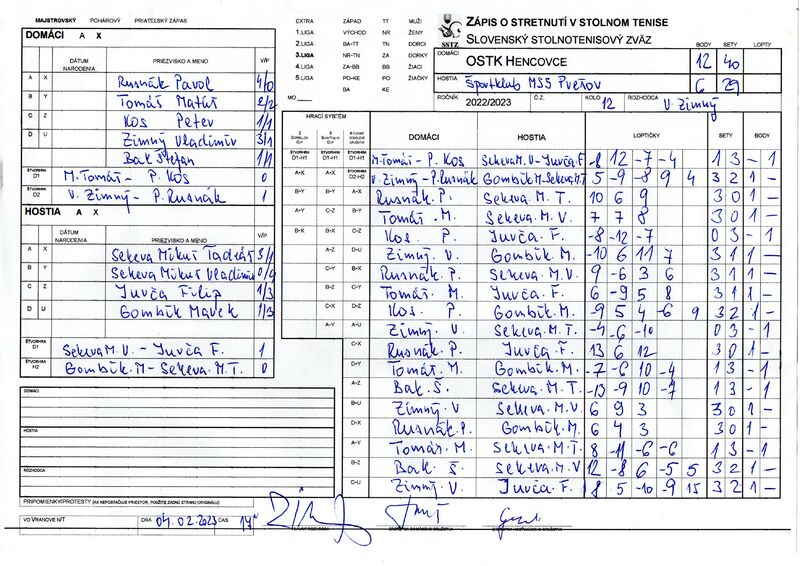 MAJSTROVSKÝ POHÁROVÝ PRIATEĽSKÝ ZÁPAS
DOMÁCI A X
DÁTUM NARODENIA PRIEZVISKO A MENO V/P
A X Rusnák Pavol 4/0
B Y Tomáš Matúš 2/2
C Z Kos Peter 1/1
D U Zimný Vladimír 3/1
Bak Štefan 1/1
ŠTVORHRA D1 M. Tomáš - P. Kos 0
ŠTVORHRA D2 V. Zimný - P. Rusnák 1
HOSTIA A X
DÁTUM NARODENIA PRIEZVISKO A MENO V/P
A X Sekeva Mikuš Tadeáš 3/1
B Y Sekeva Mikuš Vladimír 0/4
C Z Jurča Filip 1/3
D U Gombík Marek 1/3
ŠTVORHRA D1 Sekeva M. V. - Jurča F. 1
ŠTVORHRA H2 Gombík. M - Sekeva. M. T. 0
DOMÁCI
HOSTIA
ROZHODCA
PRIPOMIENKY/PROTESTY (AK NEPOSTAČUJE PRIESTOR, POUŽITE ZADNÚ STRANU ORIGINÁLU)
VO VRANOVE N/T DŇA 04.02.2023 ČAS 14
EXTRA ZÁPAD TT MUŽI
1.LIGA VÝCHOD NR ŽENY
2.LIGA BA-TT TN DORCI
3.LIGA NR-TN ZA DORKY
4.LIGA ZA-BB BB ŽIACI
5.LIGA PO-KE PO ŽIAČKY
BA KE
MO
ZÁPIS O STRETNUTÍ V STOLNOM TENISE
SSTZ SLOVENSKÝ STOLNOTENISOVÝ ZVÄZ
BODY SETY LOPTY
DOMÁCI OSTK HENCOVCE 12 40
HOSTIA Športklub MSS Prešov 6 29
ROČNÍK 2022/2023 Č.Z. KOLO 12 ROZHODCA V. Zimný
HRACÍ SYSTÉM
DOMÁCI HOSTIA LOPTIČKY SETY BODY
ŠTVORHRA D1-H1 ŠTVORHRA D1-H1 ŠTVORHRA D1-H1 M. Tomáš - P. Kos Sekeva M. V - Jurča F. -8 12 -7 -4 1 3 - 1
A-X A-X ŠTVORHRA D2-H2 V. Zimný - P. Rusnák Gombík M - Sekeva. M. T 5 -9 -8 9 4 3 2 1 -
B-Y B-Y A-X Rusnák. P. Sekeva. M. T. 10 6 9 3 0 1 -
A-Y C-Z B-Y Tomáš. M. Sekeva. M. V. 7 7 8 3 0 1 -
B-X B-X C-Z Kos P. Jurča F. -8 -12 -7 0 3 - 1
A-Z D-U Zimný. V. Gombík. M. -10 6 11 7 3 1 1 -
C-Y B-X Rusnák. P. Sekeva. M. V. 9 -6 3 6 3 1 1 -
B-Z C-Y Tomáš. M. Jurča. F. 6 -9 5 8 3 1 1 -
C-X D-Z Kos. P. Gombík. M. -9 5 4 -6 9 3 2 1 -
A-Y A-U Zimný. V. Sekeva. M. T. -4 -6 -10 0 3 - 1
C-X Rusnák. P. Jurča F. 13 6 12 3 0 1 -
D-Y Tomáš. M. Gombík. M. -7 -6 10 -4 1 3 - 1
A-Z Bak. Š. Sekeva. M. T. -13 -9 10 -7 1 3 - 1
B-U Zimný. V Sekeva. M. V. 6 9 3 3 0 1 -
D-X Rusnák. P. Gombík. M. 6 4 3 3 0 1 -
A-Y Tomáš. M. Sekeva. M. T. 8 -11 -6 -6 1 3 - 1
B-Z Bak. Š. Sekeva. M. V 12 -8 6 -5 5 3 2 1 -
C-U Zimný. V. Jurča. F. 8 5 -10 -9 15 3 2 1 -